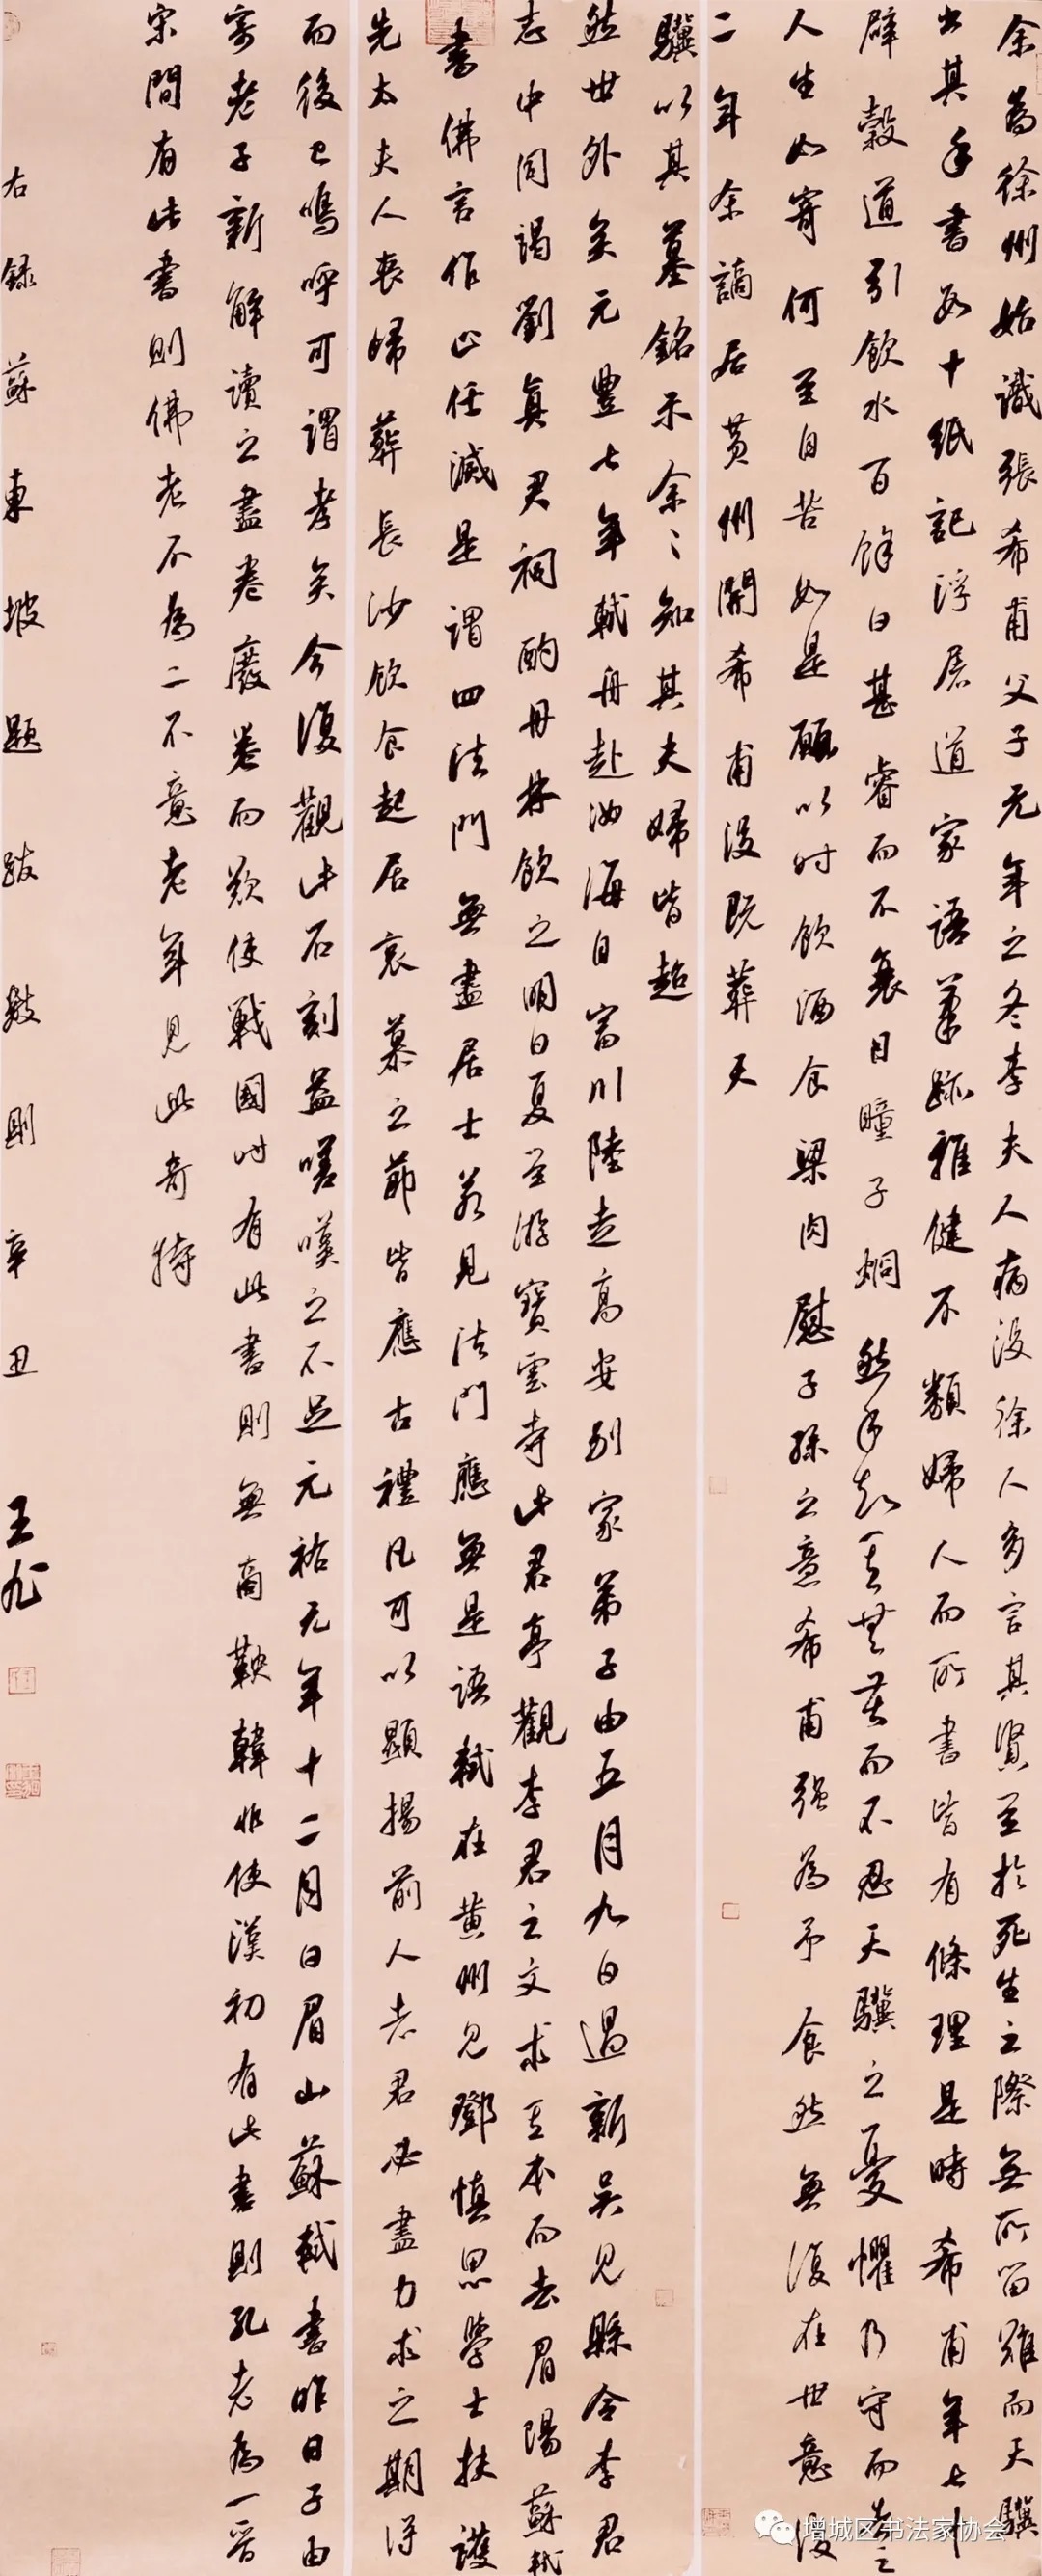 余為徐州始識張希甫父子元年之冬李夫人病没徐人多言其賢至於死生之際無所留難而天驥
出其手書數十紙記浮屠道家語筆跡雅健不類婦人而所書皆有條理是時希甫年七十
辟穀道引飲水百餘日甚睿而不衰目瞳子炯然手知其無苦而不忍天驥之憂懼乃守而告之
人生如寄何至自苦如是願以時飲酒食梁肉慰子孫之意希甫强為予食然無復在世意後
二年余謫居黃州聞希甫没既葬天
驥以其墓銘示余〻知其夫婦皆超
然世外矣元豐七年軾舟赴汝海自富川陸走高安別家弟子由五月九日過新吴見縣令李君
志中同謁劉真君祠酌丹井飲之明日夏至游寶雲寺此君亭觀李君之文求其本而去眉陽蘇軾
書佛言作止任滅是謂四法門無盡居士若見法門應無是語軾在黄州見鄧慎思學士扶護
先太夫人喪歸葬長沙飲食起居哀慕之節皆應古禮凡可以顯揚前人者君必盡力求之期得
而後已嗚呼可謂孝矣今復觀此石刻益嗟嘆之不足元祐元年十二月日眉山蘇軾書昨日子由
寄老子新解讀之盡卷廢卷而歎使戰國時有此書則無商鞅韓非使漢初有此書則孔老為一晉
宋間有此書則佛老不為二不意老年見此奇特
右錄蘇東坡題跋數則辛丑
王九
增城区书法家协会